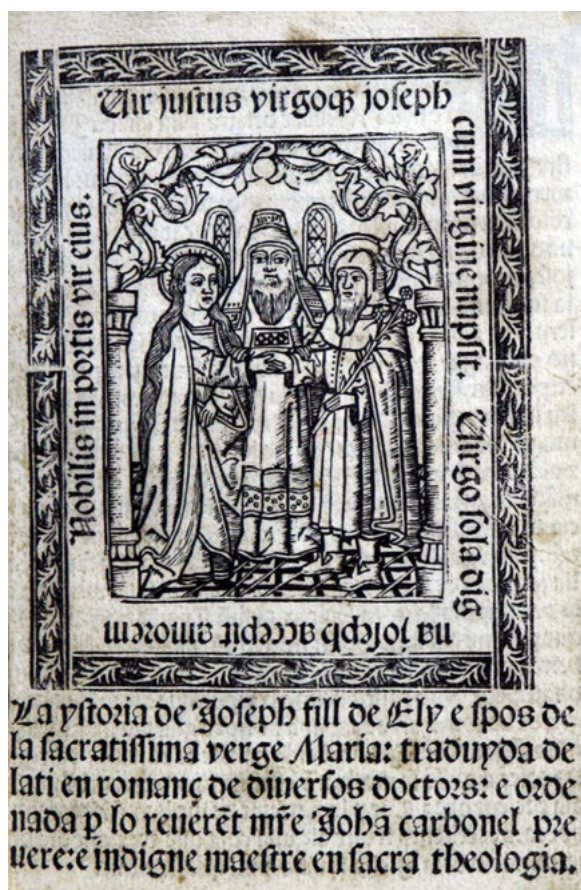 Vir justus virgoqꝫ joseph
cum virgine nupsit. Virgo sola dig
na joseph accepit amorem
Nobilis in portis vir eius.
La ystoria de Joseph fill de Ely e spos de
la sacratissima verge Maria: traduyda de
lati en romanç de diuersos doctors: e orde
nada ꝑ lo reuerẽt mr̃e Johã carbonel pre
uere: e indigne maestre en sacra theologia.